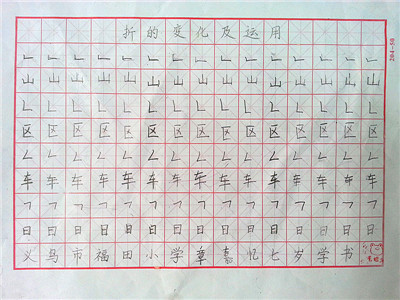 折的变化及运用
𠃊𠃊𠃊𠃊𠃊𠃊𠃊𠃊𠃊𠃊𠃊𠃊𠃊𠃊𠃊
山山山山山山山山山山山山山山山
𠃊𠃊𠃊𠃊𠃊𠃊𠃊𠃊𠃊𠃊𠃊𠃊𠃊𠃊𠃊
区区区区区区区区区区区区区区区
𠃋𠃋𠃋𠃋𠃋𠃋𠃋𠃋𠃋𠃋𠃋𠃋𠃋𠃋𠃋
车车车车车车车车车车车车车车车
𠃍𠃍𠃍𠃍𠃍𠃍𠃍𠃍𠃍𠃍𠃍𠃍𠃍𠃍𠃍
日日日日日日日日日日日日日日日
义乌市福田小学章嘉忆七岁学书